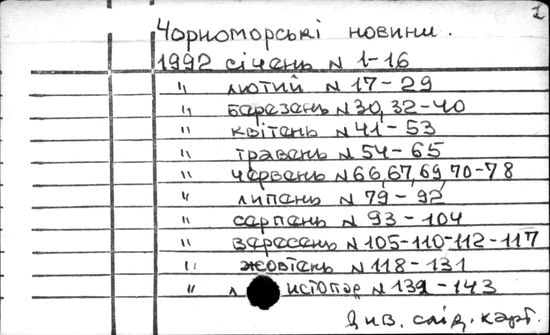 1
Чорноморські новини.
1992 січень N 1-16
" лютий N 17-29
" березень N 30, 32-40
" квітень N 41-53
" травень N 54-65
" червень N 66,67,69,70-78
" липень N 79-92
" серпень N 93-104
" вересень N 105-110-112-117
" жовтень N 118-131
" листопад N 132-143
Див. слід. карт.